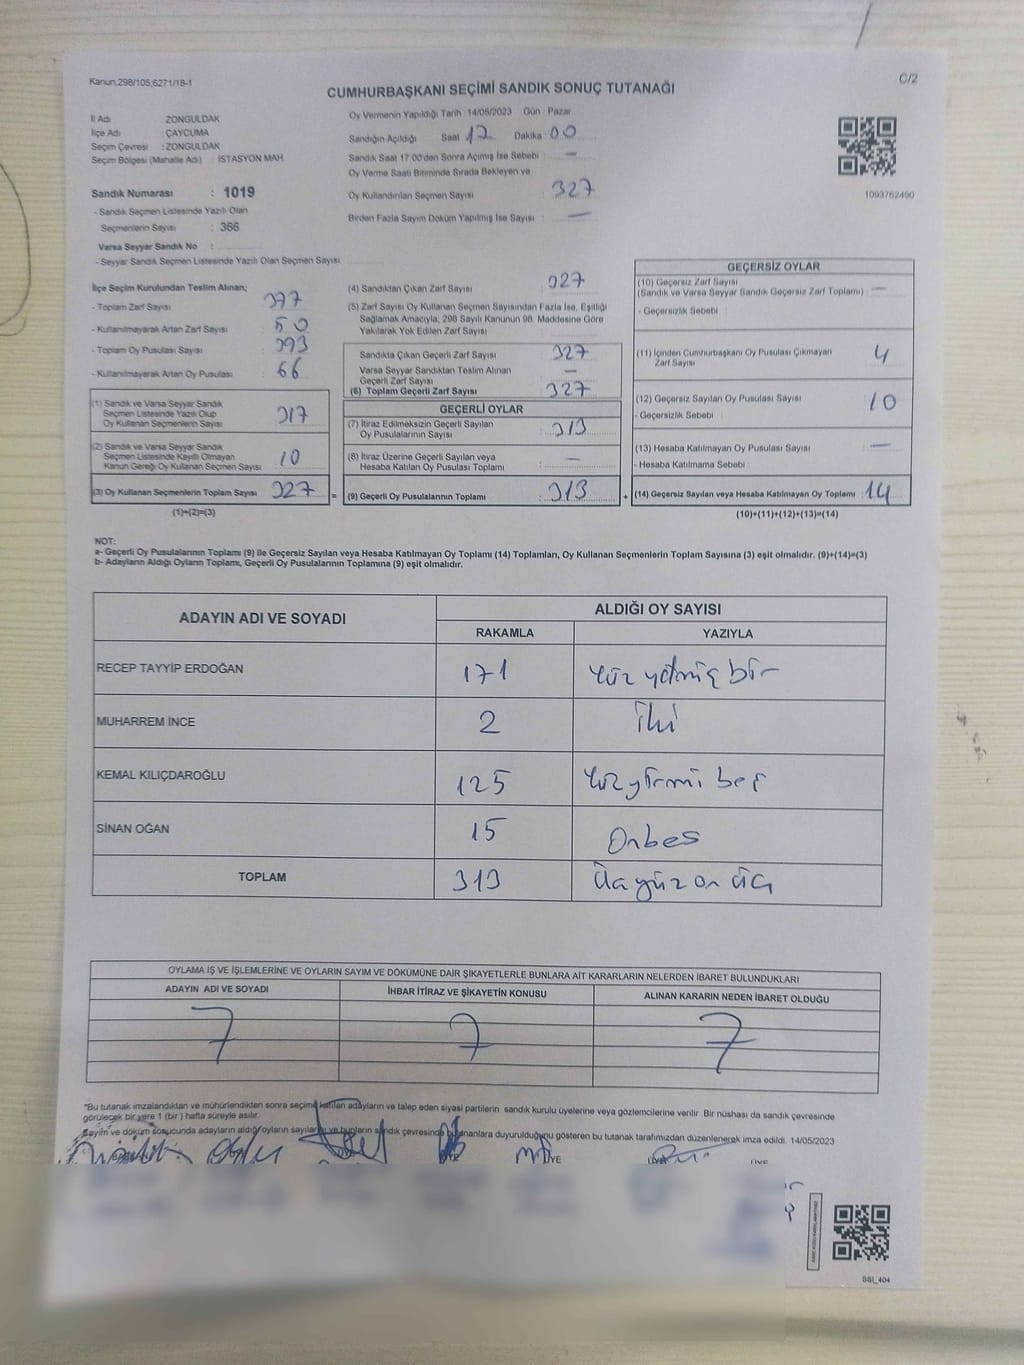 Kanun:298/105,6271/18-1
C/2
CUMHURBAŞKANI SEÇİMİ SANDIK SONUÇ TUTANAĞI
İl Adı : ZONGULDAK
İlçe Adı : ÇAYCUMA
Seçim Çevresi : ZONGULDAK
Seçim Bölgesi (Mahalle Adı) : İSTASYON MAH.
Sandık Numarası : 1019
- Sandık Seçmen Listesinde Yazılı Olan
Seçmenlerin Sayısı : 366
Varsa Seyyar Sandık No :
- Seyyar Sandık Seçmen Listesinde Yazılı Olan Seçmen Sayısı
Oy Vermenin Yapıldığı Tarih 14/05/2023 Gün Pazar
Sandığın Açıldığı Saat 17 Dakika 00
Sandık Saat 17:00'den Sonra Açımış İse Sebebi : —
Oy Verme Saati Bitiminde Sırada Bekleyen ve
Oy Kullandırılan Seçmen Sayısı 327
Birden Fazla Sayım Döküm Yapılmış İse Sayısı : —
1093762490
İlçe Seçim Kurulundan Teslim Alınan;
- Toplam Zarf Sayısı : 377
- Kullanılmayarak Artan Zarf Sayısı : 50
- Toplam Oy Pusulası Sayısı : 393
- Kullanılmayarak Artan Oy Pusulası : 66
(1) Sandık ve Varsa Seyyar Sandık
Seçmen Listesinde Yazılı Olup
Oy Kullanan Seçmenlerin Sayısı 317
(2) Sandık ve Varsa Seyyar Sandık
Seçmen Listesinde Kayıtlı Olmayan
Kanun Gereği Oy Kullanan Seçmen Sayısı 10
(3) Oy Kullanan Seçmenlerin Toplam Sayısı 327 =
(1)+(2)=(3)
(4) Sandıktan Çıkan Zarf Sayısı : 327
(5) Zarf Sayısı Oy Kullanan Seçmen Sayısından Fazla İse, Eşitliği
Sağlamak Amacıyla, 298 Sayılı Kanunun 98. Maddesine Göre
Yakılarak Yok Edilen Zarf Sayısı
Sandıkta Çıkan Geçerli Zarf Sayısı : 327
Varsa Seyyar Sandıktan Teslim Alınan
Geçerli Zarf Sayısı —
(6) Toplam Geçerli Zarf Sayısı : 327
GEÇERLİ OYLAR
(7) İtiraz Edilmeksizin Geçerli Sayılan
Oy Pusulalarının Sayısı : 313
(8) İtiraz Üzerine Geçerli Sayılan veya
Hesaba Katılan Oy Pusulası Toplamı : —
(9) Geçerli Oy Pusulalarının Toplamı : 313 +
GEÇERSİZ OYLAR
(10) Geçersiz Zarf Sayısı
(Sandık ve Varsa Seyyar Sandık Geçersiz Zarf Toplamı) —
- Geçersizlik Sebebi :
(11) İçinden Cumhurbaşkanı Oy Pusulası Çıkmayan
Zarf Sayısı 4
(12) Geçersiz Sayılan Oy Pusulası Sayısı 10
- Geçersizlik Sebebi :
(13) Hesaba Katılmayan Oy Pusulası Sayısı —
- Hesaba Katılmama Sebebi :
(14) Geçersiz Sayılan veya Hesaba Katılmayan Oy Toplamı 14
(10)+(11)+(12)+(13)=(14)
NOT:
a- Geçerli Oy Pusulalarının Toplamı (9) ile Geçersiz Sayılan veya Hesaba Katılmayan Oy Toplamı (14) Toplamları, Oy Kullanan Seçmenlerin Toplam Sayısına (3) eşit olmalıdır. (9)+(14)=(3)
b- Adayların Aldığı Oyların Toplamı, Geçerli Oy Pusulalarının Toplamına (9) eşit olmalıdır.
ADAYIN ADI VE SOYADI
ALDIĞI OY SAYISI
RAKAMLA YAZIYLA
RECEP TAYYİP ERDOĞAN 171 Yüz yetmiş bir
MUHARREM İNCE 2 İki
KEMAL KILIÇDAROĞLU 125 Yüz yirmi beş
SİNAN OĞAN 15 Onbeş
TOPLAM 313 Üçyüz on üç
OYLAMA İŞ VE İŞLEMLERİNE VE OYLARIN SAYIM VE DÖKÜMÜNE DAİR ŞİKAYETLERLE BUNLARA AİT KARARLARIN NELERDEN İBARET BULUNDUKLARI
ADAYIN ADI VE SOYADI İHBAR İTİRAZ VE ŞİKAYETİN KONUSU ALINAN KARARIN NEDEN İBARET OLDUĞU
*Bu tutanak imzalandıktan ve mühürlendikten sonra seçime katılan adayların ve talep eden siyasi partilerin sandık kurulu üyelerine veya gözlemcilerine verilir. Bir nüshası da sandık çevresinde
görülecek bir yere 1 (bir ) hafta süreyle asılır.
Sayım ve döküm sonucunda adayların aldığı oyların sayıları ve bunların sandık çevresinde bulunanlara duyurulduğunu gösteren bu tutanak tarafımızdan düzenlenerek imza edildi. 14/05/2023
ÜYE ÜYE ÜYE
BSI_404